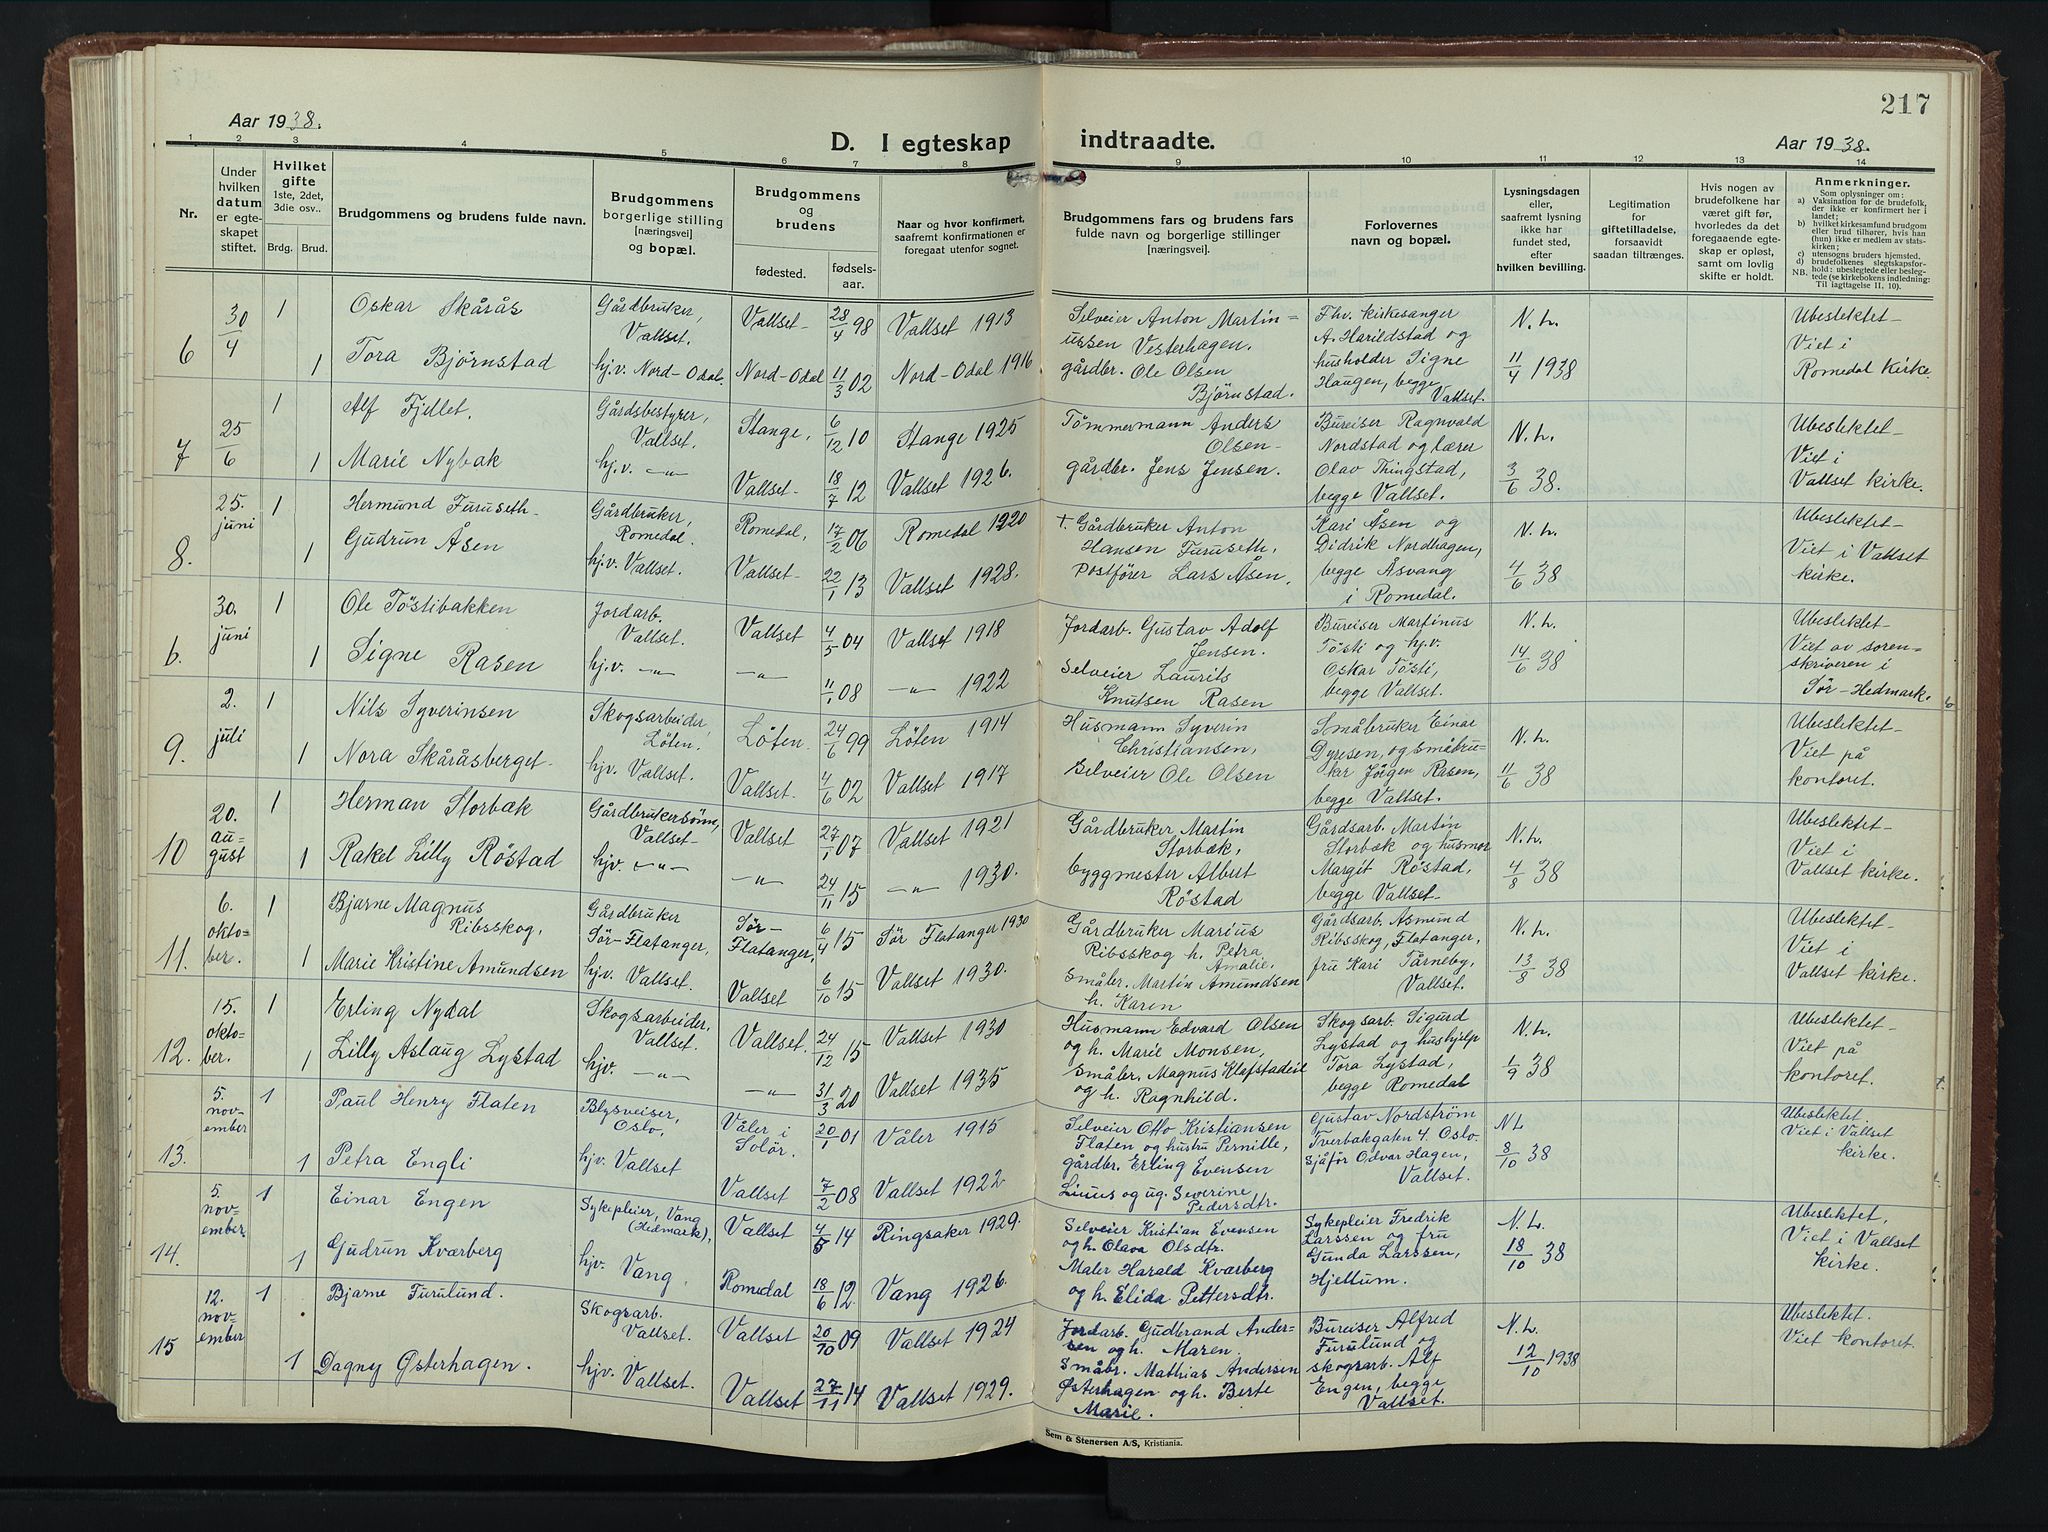 217
Aar 1938.
D. I egteskap indtraadte.
Aar 1938.
1 2 3 4 5 6 7 8 9 10 11 12 13 14
Nr.
Under hvilken datum er egteskapet stiftet.
Hvilket gifte 1ste, 2det, 3die osv..
Brdg. Brud.
Brudgommens og brudens fulde navn.
Brudgommens borgerlige stilling [næringsvei] og bopæl.
Brudgommens og brudens
fødested. fødsels-aar.
Naar og hvor konfirmert, saafremt konfirmationen er foregaat utenfor sognet.
Brudgommens fars og brudens fars fulde navn og borgerlige stillinger [næringsvei]
Forlovernes navn og bopæl.
Lysningsdagen eller, saafremt lysning ikke har fundet sted, efter hvilken bevilling.
Legitimation for giftetilladelse, forsaavidt saadan tiltrænges.
Hvis nogen av brudefolkene har været gift før, hvorledes da det foregaaende egteskap er opløst, samt om lovlig skifte er holdt.
Anmerkninger.
Som oplysninger om:
a) Vaksination for de brudefolk, der ikke er konfirmert her i landet;
b) hvilket kirkesamfund brudgom eller brud tilhører, hvis han (hun) ikke er medlem av statskirken;
c) utensogns bruders hjemsted.
d) brudefolkenes slegtskapsforhold: ubeslegtede eller beslegtede (se kirkebokens indledning: Til iagttagelse II, 10).
NB.
6 30/4 1 Oskar Skårås Gårdbruker, Vallset. Vallset 28/4 98 Vallset 1913 Selveier Anton Martinussen Vesterhagen. Fhv. kirkesanger A. Harildstad og husholder Signe Haugen, begge Vallset. N.L. 11/4 1938 Ubeslektet Viet i Romedal kirke.
1 Tora Bjørnstad hj.v. Nord-Odal. Nord-Odal 11/3 02 Nord-Odal 1916 gårdbr. Ole Olsen Björnstad.
7 25/6 1 Alf Fjellet. Gårdsbestyrer, Vallset. Stange, 6/12 10 Stange 1925 Tömmermann Anders Olsen Bureiser Ragnvald Nordstad og lærer Olav Thingstad, begge Vallset. N.L. 3/6 38. Ubeslektet Viet i Vallset kirke.
1 Marie Nybak hj.v. -"- Vallset 18/7 12 Vallset 1926. gårdbr. Jens Jensen.
8. 25. juni 1 Hermund Furuseth Gårdbruker, Romedal. Romedal, 17/2 06 Romedal 1920 + Gårdbruker Anton Hansen Furuseth, Kari Åsen og Didrik Nordhagen, begge Åsvang i Romedal. N.L. 4/6 38 Ubeslektet Viet i Vallset kirke.
1 Gudrun Åsen hj.v. Vallset. Vallset 22/1 13 Vallset 1928. Postfører Lars Åsen,
6. 30. juni 1 Ole Töstibakken Jordarb. Vallset. Vallset 4/5 04 Vallset 1918 Jordarb. Gustav Adolf Jensen. Bureiser Martinus Tösti og hj.v. Oskar Tösti, begge Vallset. N.L. 14/6 38 Ubeslektet Viet av sorenskriveren i Sør-Hedmark.
1 Signe Rasen hj.v. -"- -"- 11/1 08 -"- 1922 Selveier Laurits Knutsen Rasen
9. 2. juli 1 Nils Syverinsen Skogsarbeider, Löten. Löten. 24/6 99 Löten 1914 Husmann Syverin Christiansen, Småbruker Einar Dyresen, og småbruker Jörgen Rasen, begge Vallset. N.L. 11/6 38 Ubeslektet Viet på kontoret.
1 Nora Skåråsberget hjv. Vallset. Vallset. 4/6 02 Vallset 1917 Selveier Ole Olsen
10 20. august 1 Herman Storbæk Gårdbrukersønn, Vallset Vallset 27/1 07 Vallset 1921 Gårdbruker Martin Storbæk, Gårdsarb. Martin Storbæk og husmor Margit Röstad, begge Vallset N.L. 4/8 38 Ubeslektet Viet i Vallset kirke.
1 Rakel Lilly Röstad hjv. -"- -"- 24/11 15 -"- 1930. byggmester Albert Röstad
11. 6. oktober. 1 Bjarne Magnus Ribsskog, Gårdbruker Sør-Flatanger, Sør-Flatanger, 6/4 15 Sør Flatanger 1930 Gårdbruker Marius Ribsskog h. Petra Amalie. Gårdsarb. Asmund Ribsskog, Flatanger, fru Kari Tårneby, Vallset. N.L. 13/8 38 Ubeslektet Viet i Vallset kirke.
1 Marie Kristine Amundsen hjv. Vallset. Vallset 6/10 15 Vallset 1930. Småbr. Martin Amundsen h. Karen
12. 15. oktober. 1 Erling Nydal Skogsarbeider, Vallset. Vallset. 24/12 15 Vallset 1930 Husmann Edvard Olsen og h. Marie Monsen, Skogsarb. Sigurd Lystad og hushjelp Tora Lystad, begge Romedal N.L. 1/9 38 Ubeslektet Viet på kontoret.
1 Lilly Aslaug Lystad hjv. -"- -"- 31/3 20 Vallset 1935 Småbr. Magnus Klefstadeie og h. Ragnhild.
13. 5. november 1 Paul Henry Flaten Blysveiser, Oslo, Våler i Solör. 20/1 01 Våler 1915 Selveier Otto Kristiansen Flaten og hustru Pernille, Gustav Nordström Tverbakgaten 4. Oslo. Sjåför Odvar Hagen, Vallset. NL 8/10 38 Ubeslektet. Viet i Vallset kirke.
1 Petra Engli hjv. Vallset Vallset 7/2 08 Vallset 1922 gårdbr. Erling Evensen Linus og ug. Severine Pedersdtr.
14. 5. november 1 Einar Engen Sykepleier, Vang (Hedmark), Vallset 4/8 14 Ringsaker 1929. Selveier Kristian Evensen og h. Olava Olsdtr. Sykepleier Fredrik Larssen og fru Gunda Larssen, Hjellum. N.L. 18/10 38 Ubeslektet, Viet i Vallset kirke.
1 Gudrun Kværberg hjv. Vang, Romedal 18/6 12 Vang 1926. Maler Harald Kværberg og h. Elida Pettersdtr.
15 12. november 1 Bjarne Furulund. Skogsarb. Vallset. Vallset 20/10 09 Vallset 1924 Jordarb. Gudbrand Andersen og h. Maren. Bureiser Alfred Furulund og skogsarb. Alf Engen, begge Vallset. N.L. 12/10 1938 Ubeslektet. Viet kontoret.
1 Dagny Østerhagen. hjv. Vallset. Vallset 27/11 14 Vallset 1929. Småbr. Mathias Andersen Østerhagen og h. Berte Marie.
Sem & Stenersen A/S, Kristiania.